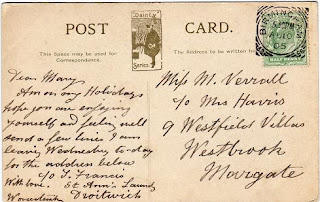 POST CARD.
"Dainty"
Series
This Space may be used for
Correspondence.
The Address to be written here
BIRMINGHAM
AU 10
05
HALF PENNY
Dear Mary
Am on my Holidays
hope you are enjoying
yourself and feeling well
send a few lines I am
leaving Wednesday to-day
for the address below
c/o T. Francis
With love. St Ann's
Droitwich
Worcestersh
Miss M. Verrall
c/o Mrs Harris
9 Westfield Villas
Westbrook
Margate